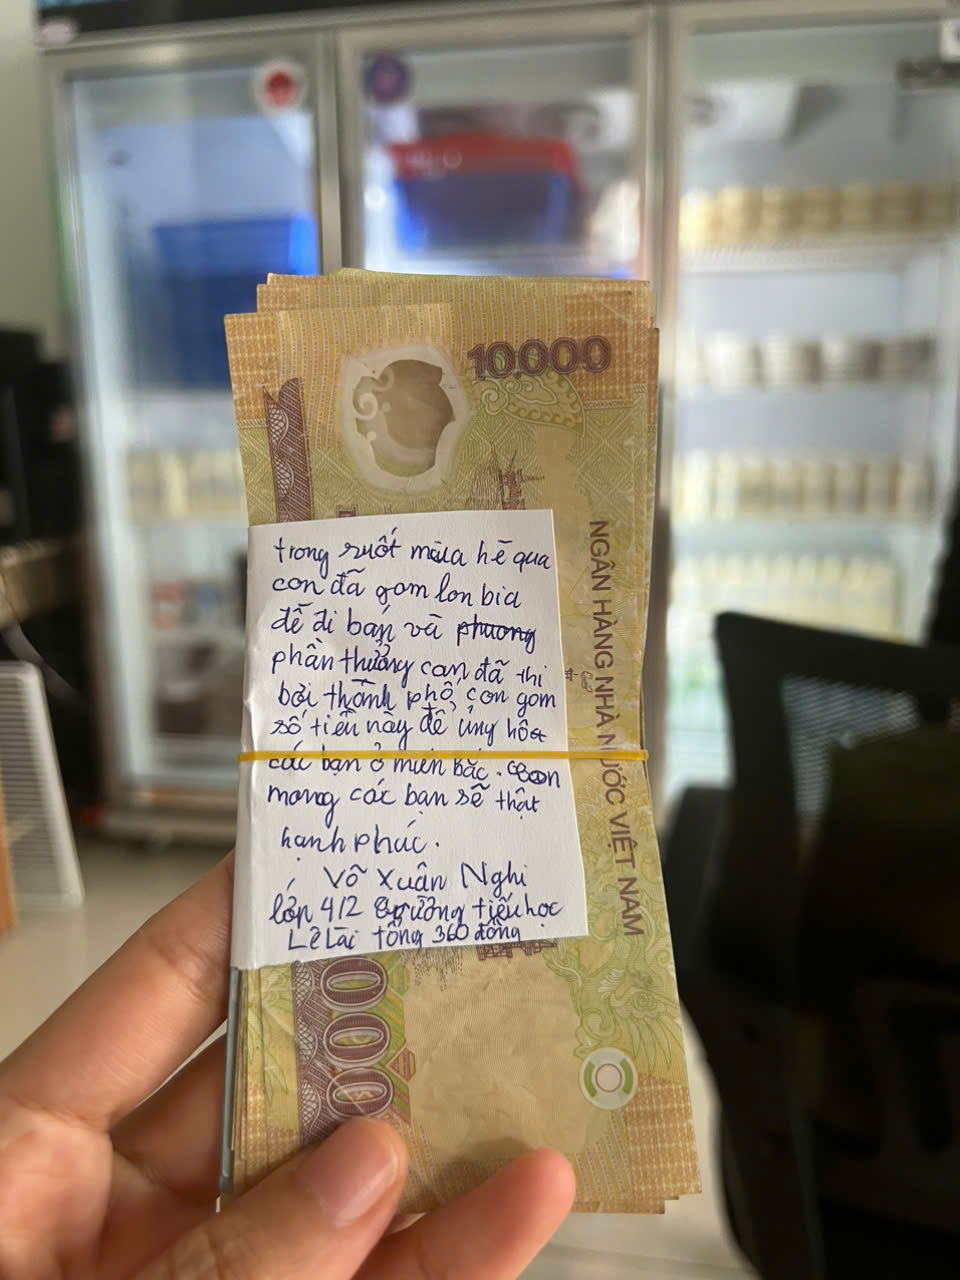 10.000
NGÂN HÀNG NHÀ NƯỚC VIỆT NAM
trong suốt mùa hè qua
con đã gom lon bia
để đi bán và phương
phần thưởng con đã thi
bơi thành phố, con gom
số tiền này để ủng hôa
các bạn ở miền bắc. Con
mong các bạn sẽ thật
hạnh phúc.
Võ Xuân Nghi
lớp 4/2 trường tiểu học
Lê Lai tổng 360 đồng
000